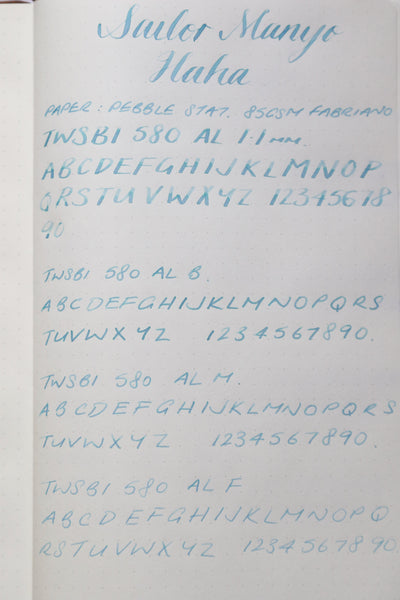 Sailor Manyo
Haha
PAPER: PEBBLE STAT. 85GSM FABRIANO
TWSBI 580 AL 1.1mm.
ABCDEFGHIJKLMNOP
QRSTUVWXYZ 12345678
90
TWSBI 580 AL B.
ABCDEFGHIJKLMNOPQRS
TUVWXYZ 1234567890.
TWSBI 580 AL M.
ABCDEFGHIJKLMNOPQRS
TUVWXYZ 1234567890.
TWSBI 580 AL F
ABCDEFGHIJKLMNOPQ
RSTUVWXYZ 1234567890.